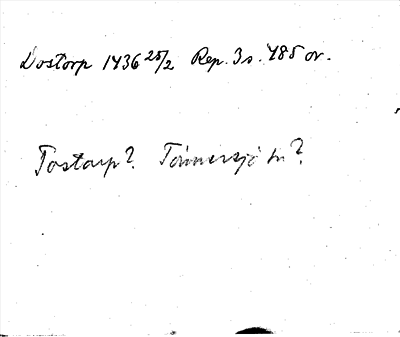 Dostorp 1436 25/2 Rep. 3 s. 485 or.
Tostarp? Tönnersjö hr?